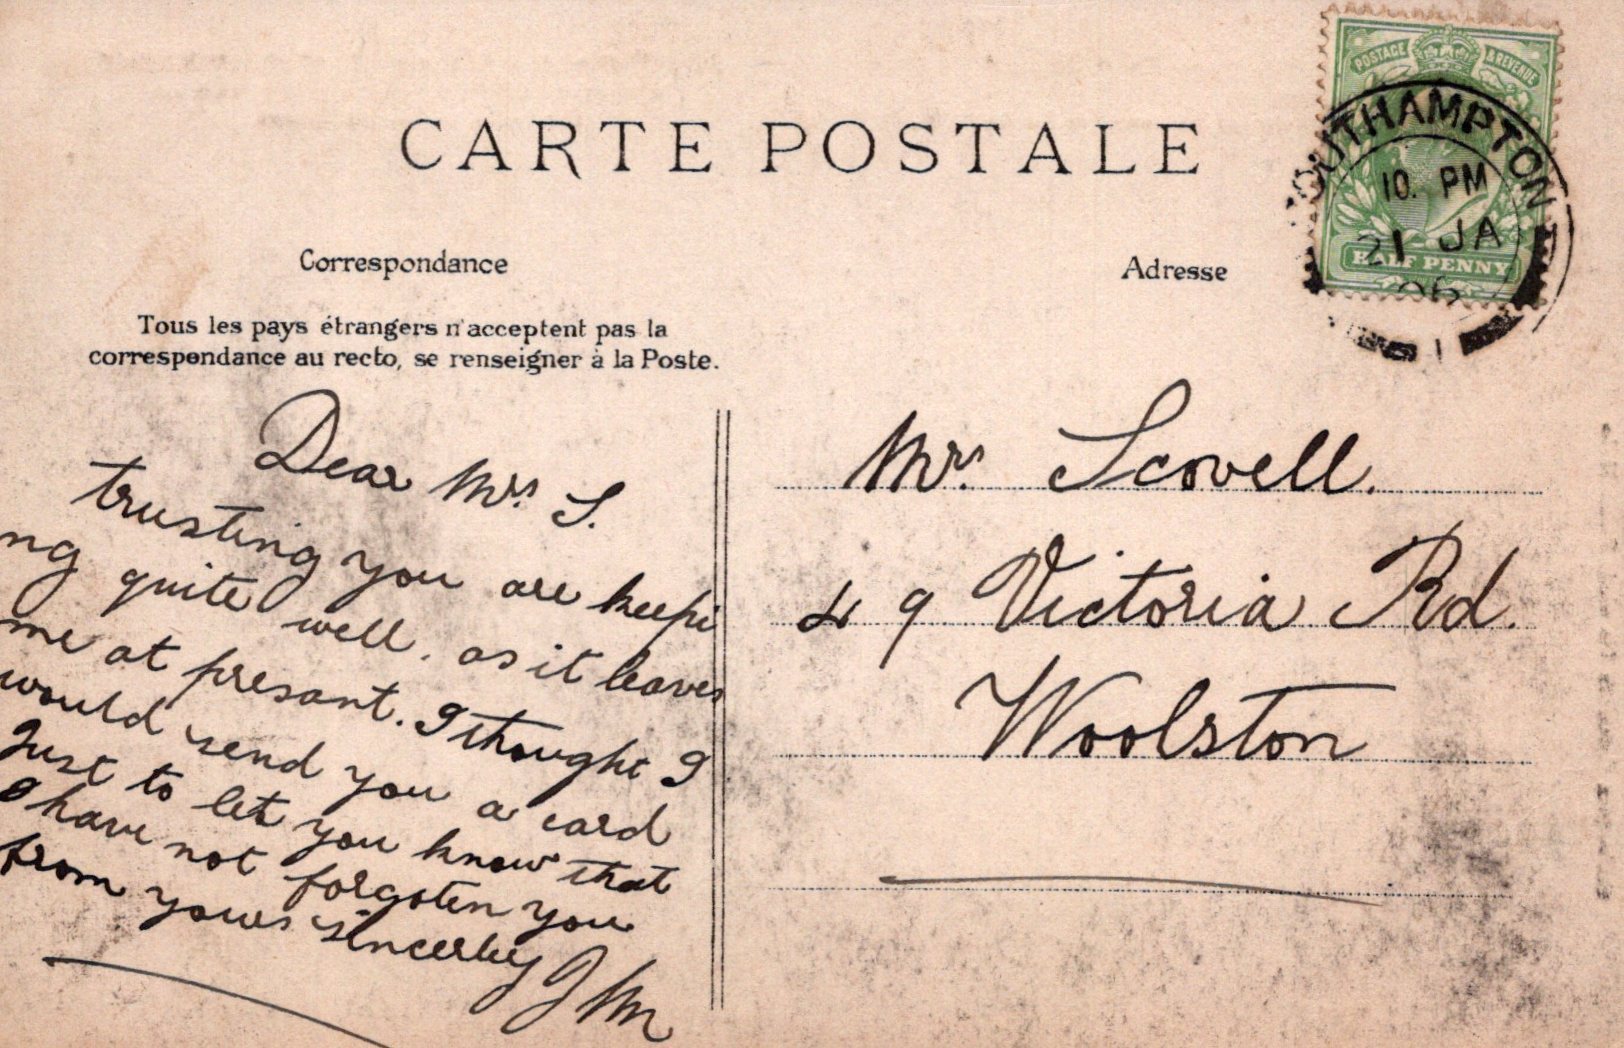 CARTE POSTALE
Correspondance
Tous les pays étrangers n'acceptent pas la
correspondance au recto, se renseigner à la Poste.
Dear Mrs S.
trusting you are keepi
ng quite well. as it leaves
me at presant. I thought I
would send you a card
Just to let you know that
I have not forgoten you
from yours sincerley
Adresse
Mrs Scovell.
49 Victoria Rd.
Woolston
POSTAGE & REVENUE
HALF PENNY
SOUTHAMPTON
10. PM
21 JA
06
1